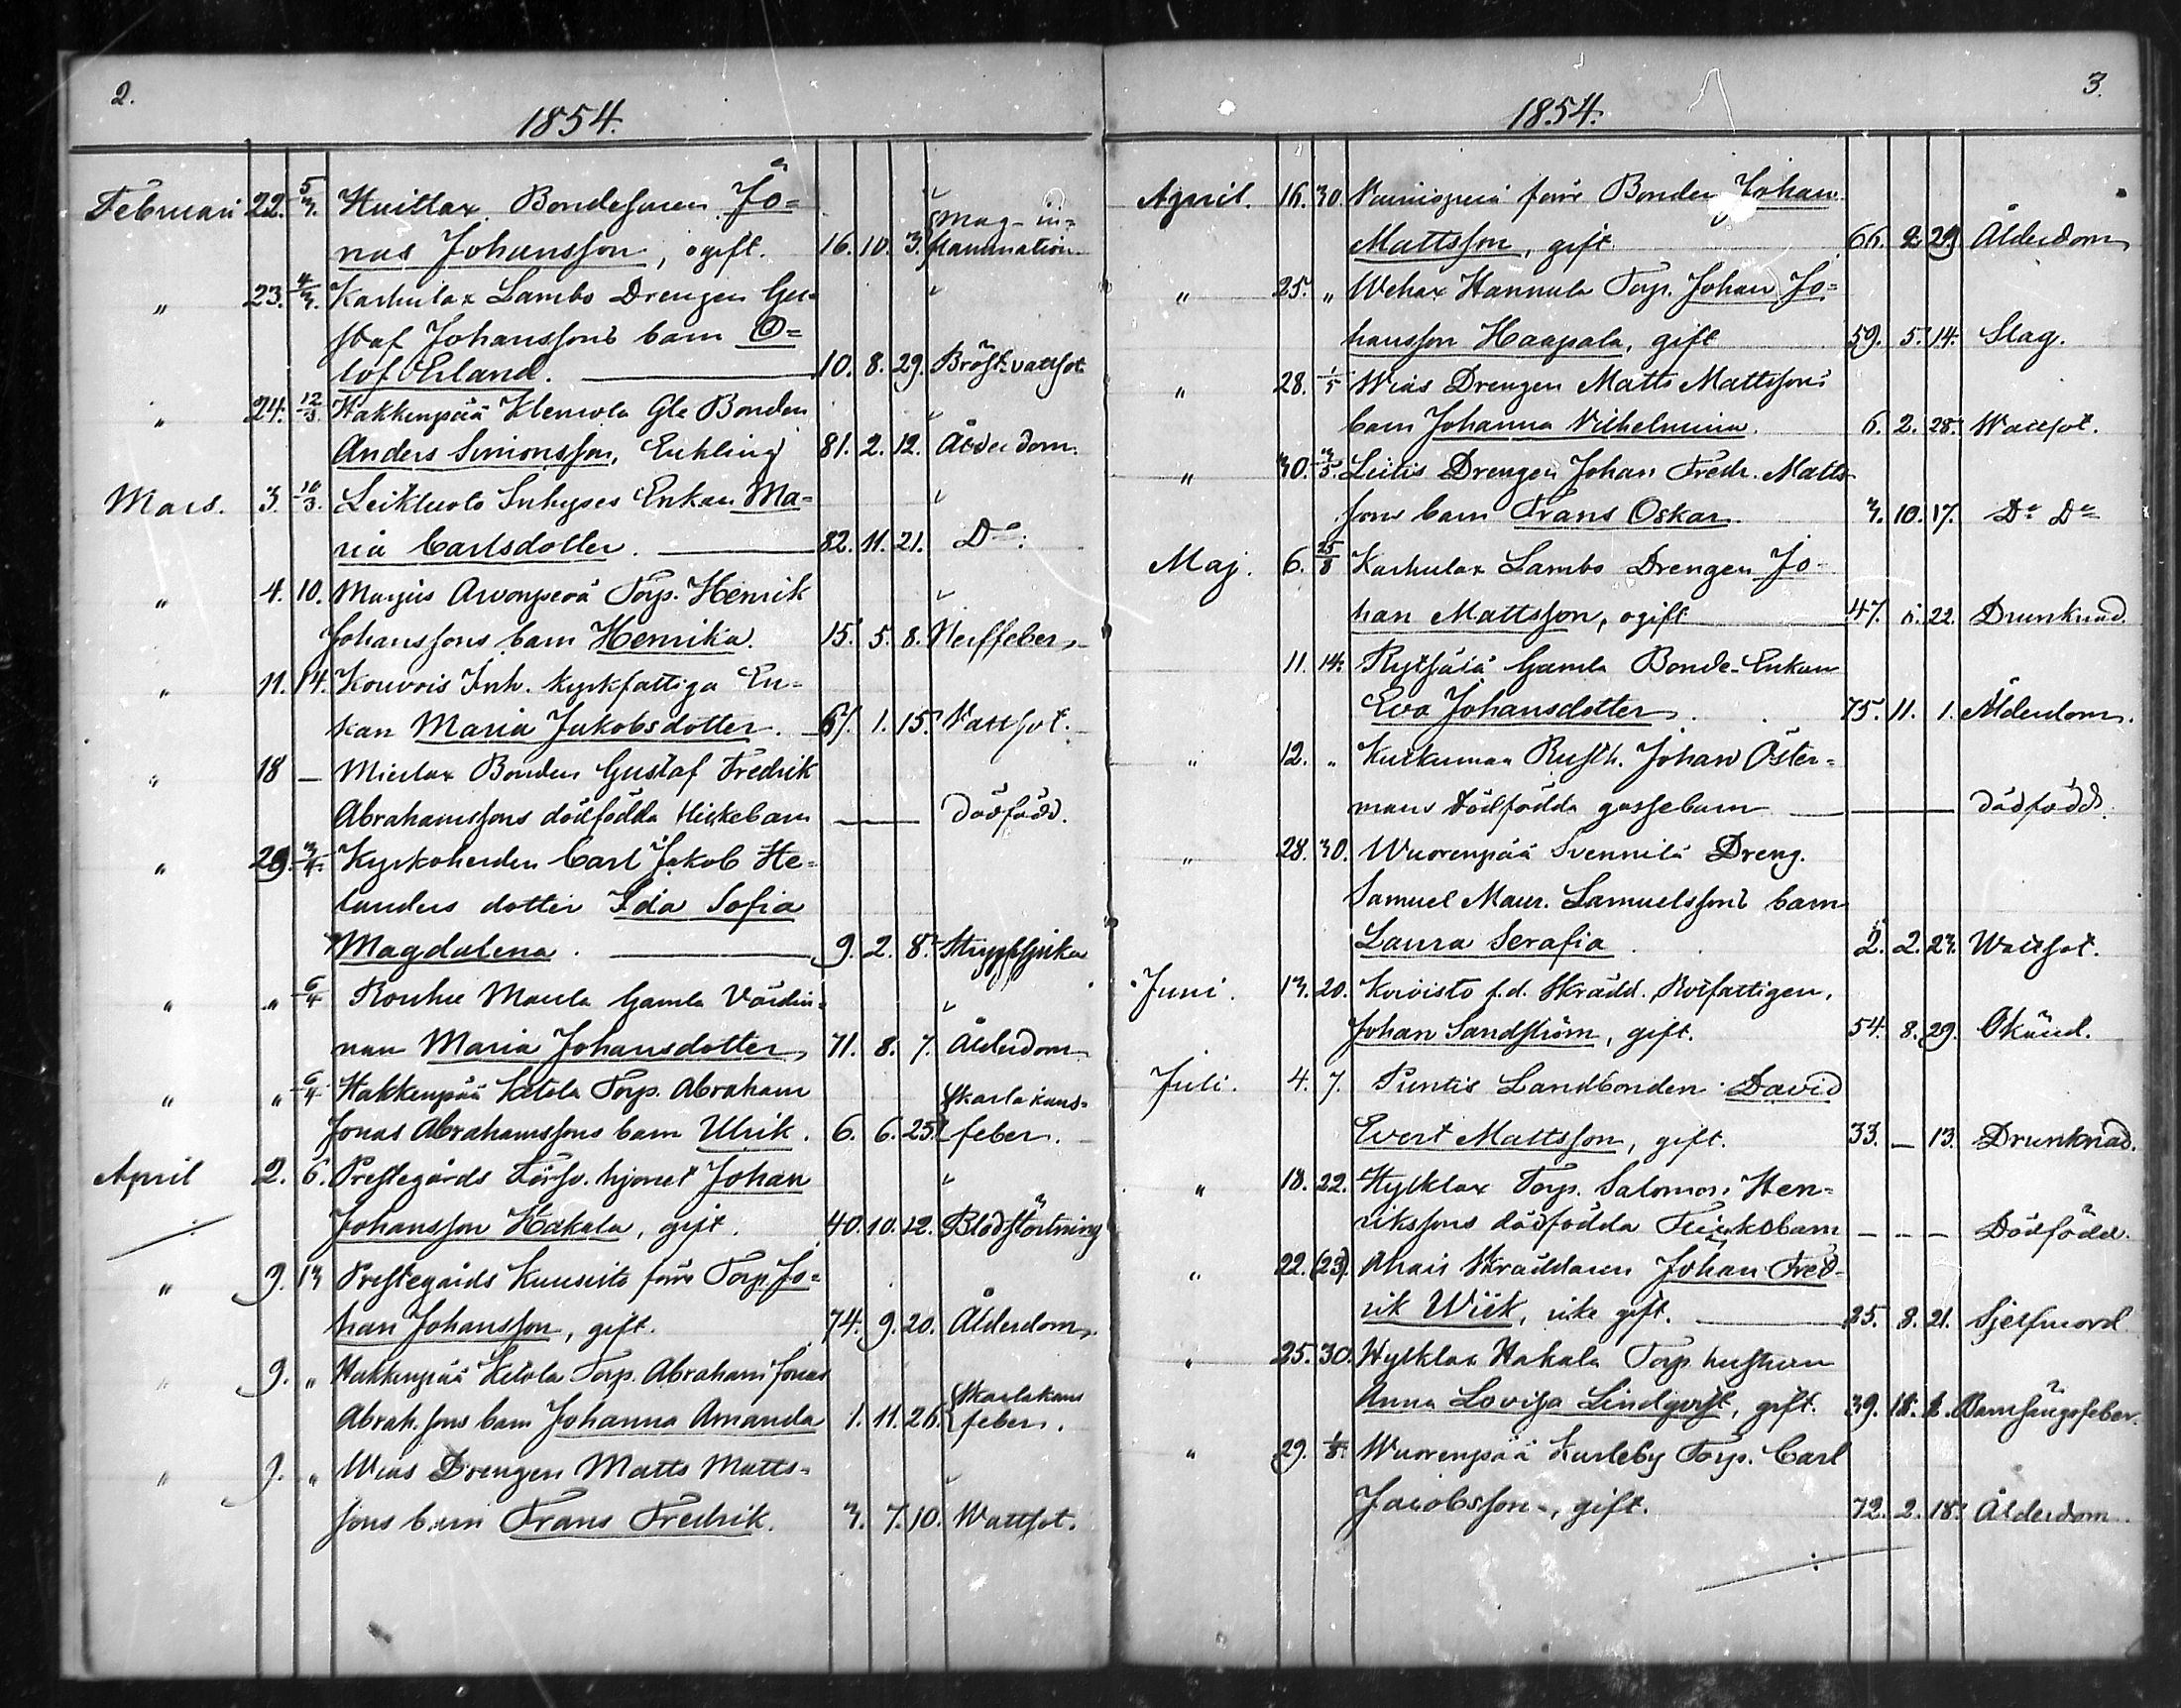 2.
1854.
Februari 22. 5/3. Huittax Bondesonen Jo=
nas Johansson, ogift. 16. 10. 3. Mag-in=
flammation
" 23. 4/3. Karhulax Lambo Drengen Gu=
staf Johanssons barn O=
lof Erland. 10. 8. 29. Bröst-vattsot
" 24. 12/3. Hakkenpää Klemola Gle Bonden
Anders Simonsson, Enkling 81. 2. 12. Ålderdom.
Mars. 3. 10/3. Leikluoto Inhyses Enkan Ma=
ria Carlsdotter. 82. 11. 21. Do:
" 4. 10. Marjus Arvonperä Torp. Henrik
Johanssons barn Henrika. 15. 5. 8. Nerffeber
" 11. 14. Kouvois Inh. kyrkfattiga En=
kan Maria Jakobsdotter. 67. 1. 15. Vattsot.
" 18 — Mierlax Bonden Gustaf Fredrik
Abrahamssons dödfödda flickebarn — dödfödd.
" 29. 3/4. Kyrkoherden Carl Jakob He=
landers dotter Ida Sofia
Magdalena. 9. 2. 8. Strypsjuka
" " 6/4 Rouhu Maula Gamla Värdin=
nan Maria Johansdotter 71. 8. 7. Ålderdom
" " 6/4 Hakkenpää Ketola Torp. Abraham
Jonas Abrahamssons barn Ulrik. 6. 6. 25. Skarlakans=
feber.
April 2. 6. Prestegårds Försv. hjonet Johan
Johansson Hakala, gift. 40. 10. 12. Blodstörtning
" 9. 13 Prestegårds Kuusisto förre Torp. Jo=
han Johansson, gift. 74. 9. 20. Ålderdom
" 9. " Hakkenpää Ketola Torp. Abraham Jonas
Abrah.sons barn Johanna Amanda 1. 11. 26. Skarlakans
feber.
" 9. " Wias Drengen Matts Matts=
sons barn Frans Fredrik. 3. 7. 10. Wattsot.
3.
1854.
April. 16. 30. förre Bonden Johan
Mattsson, gift 66. 2 29 Ålderdom
" 25. " Wehax Hannula Torp. Johan Jo=
hansson Haapala, gift 59. 5. 14. Slag.
" 28. 1/5 Wias Drengen Matts Mattssons
barn Johanna Vilhelmina. 6. 2. 28. Wattsot.
" 30. 3/5. Leitis Drengen Johan Fredr. Matts
sons barn Frans Oskar 3. 10. 17. Do Do
Maj. 6. 25/8 Karhulax Lambo Drengen Jo
han Mattsson, ogift 47. 22. Drunknad.
11. 14. Rytsälä Gamla Bonde-Enkan
Eva Johansdotter. 75. 11. 1. Ålderdom.
" 12. " Kurkumaa Rusth. Johan Öster=
mans dödfödda gossebarn — dödfödd.
" 28. 30. Wuorenpää Svennilä Dreng.
Samuel Maur. Samuelssons barn
Laura Serafia 2. 2. 23. Wattsot.
Juni. 13. 20. Koivisto f.d. Skrädd. Rotfattigen,
Johan Sandström, gift. 54. 8. 29. Okänd.
Juli. 4. 7. Puntis Landbonden David
Evert Mattsson, gift. 33. — 13. Drunknad.
" 18. 22. Hylklax Torp. Salomon Hen=
rikssons dödfödda Flickobarn — — — Dödfödd.
" 22. (23). Ahais Skräddaren Johan Fred=
rik Wiik, icke gift. 25. 8. 21. Sjelfmord
" 25. 30. Hylklax Hakala Torp. hustrun
Anna Lovisa Lindqvist, gift. 39. Barnsängsfeber.
" 29. 1/8. Wuorenpää Karleby Torp. Carl
Jacobsson, gift. 72. 2. 18. Ålderdom.